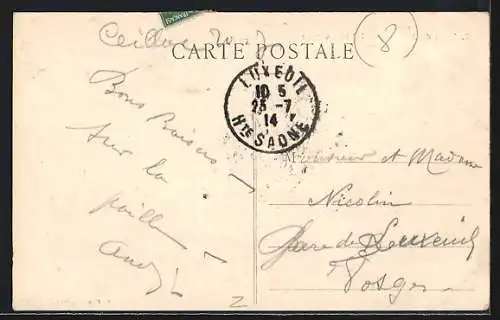 FRANÇAISE
8
CARTE POSTALE
LUXEUIL
10 5
25 -7
14
Hte SAONE
Bons Baisers
sur la
paille
Monsieur et Madame
Nicolin
Gare de Luxeuil
Vosges
2